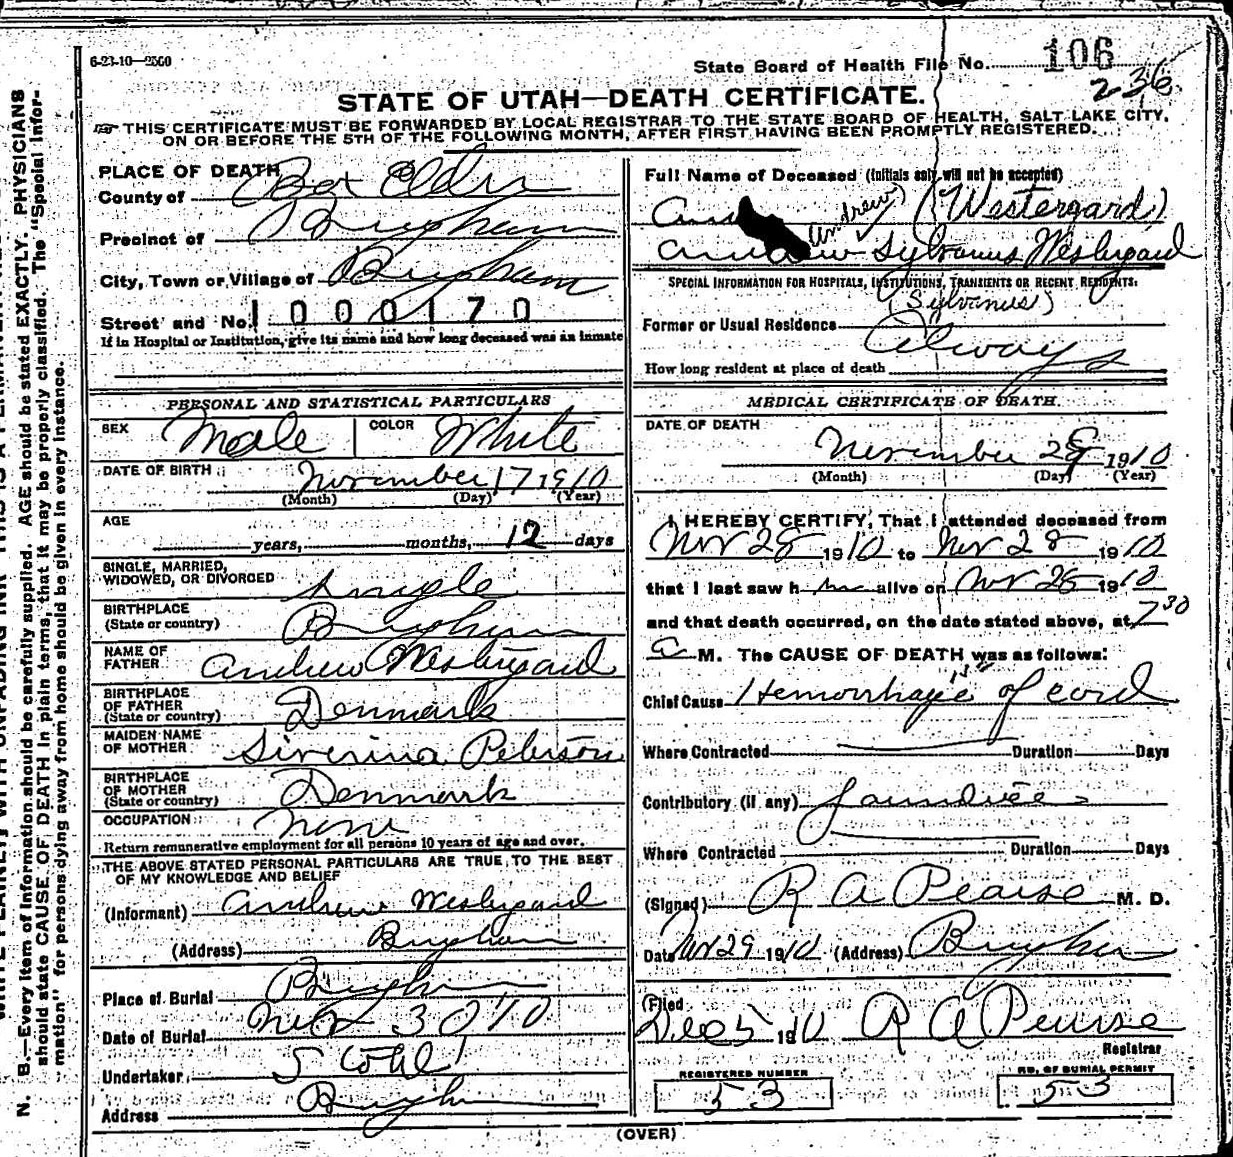 6-23-10—2500
State Board of Health File No. 106
236
STATE OF UTAH—DEATH CERTIFICATE.
THIS CERTIFICATE MUST BE FORWARDED BY LOCAL REGISTRAR TO THE STATE BOARD OF HEALTH, SALT LAKE CITY,
ON OR BEFORE THE 5TH OF THE FOLLOWING MONTH, AFTER FIRST HAVING BEEN PROMPTLY REGISTERED.
N. B.—Every item of information should be carefully supplied. AGE should be stated EXACTLY. PHYSICIANS
should state CAUSE OF DEATH in plain terms, that it may be properly classified. The "Special Infor-
mation" for persons dying away from home should be given in every instance.
PLACE OF DEATH
County of Box Elder
Precinct of Brigham
City, Town or Village of Brigham
Street and No. 1000170
If in Hospital or Institution, give its name and how long deceased was an inmate
PERSONAL AND STATISTICAL PARTICULARS
SEX Male COLOR White
DATE OF BIRTH November 17 1910
(Month) (Day) (Year)
AGE
years, months, 12 days
SINGLE, MARRIED,
WIDOWED, OR DIVORCED Single
BIRTHPLACE
(State or country) Brigham
NAME OF
FATHER Andrew Westergard
BIRTHPLACE
OF FATHER
(State or country) Denmark
MAIDEN NAME
OF MOTHER Siverina Peterson
BIRTHPLACE
OF MOTHER
(State or country) Denmark
OCCUPATION None
Return remunerative employment for all persons 10 years of age and over.
THE ABOVE STATED PERSONAL PARTICULARS ARE TRUE TO THE BEST
OF MY KNOWLEDGE AND BELIEF
(Informant) Andrew Westergard
(Address) Brigham
Place of Burial Brigham
Date of Burial Nov 30 10
Undertaker
Address Brigham
Full Name of Deceased (Initials only will not be accepted)
(Andrew) (Westergard)
Andrew Sylvanus Westergard
SPECIAL INFORMATION FOR HOSPITALS, INSTITUTIONS, TRANSIENTS OR RECENT RESIDENTS:
(Sylvanus)
Former or Usual Residence
Always
How long resident at place of death
MEDICAL CERTIFICATE OF DEATH.
DATE OF DEATH
November 28 1910
(Month) (Day) (Year)
I HEREBY CERTIFY, That I attended deceased from
Nov 28 1910 to Nov 28 1910
that I last saw him alive on Nov 28 1910
and that death occurred, on the date stated above, at 7 30
a M. The CAUSE OF DEATH was as follows:
Chief Cause Hemorrhage of cord
Where Contracted Duration Days
Contributory (if any) Jaundice
Where Contracted Duration Days
(Signed) R A Pearse M. D.
Date Nov 29 1910 (Address) Brigham
(Filed
Dec 5 1910 R A Pearse
Registrar
REGISTERED NUMBER NO. OF BURIAL PERMIT
53 53
(OVER)